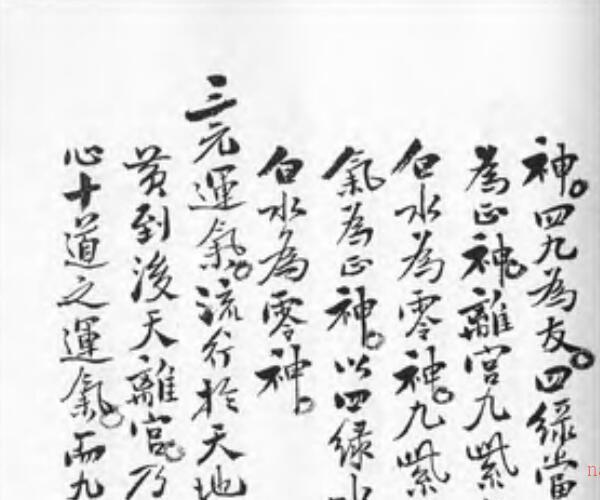 神。四九為友。四綠當
為正神。離宮九紫
白水為零神。九紫
氣為正神。以四綠水
白水為零神。
三元運氣。流行於天地
黃到後天離宮。乃
心十道之運氣。而九